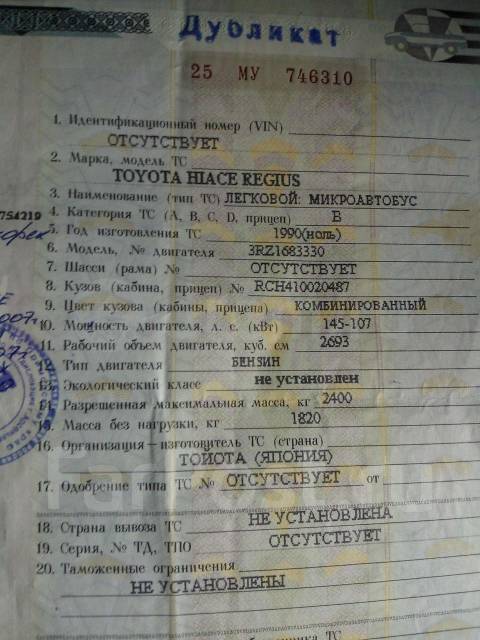 Дубликат
25 МУ 746310
1. Идентификационный номер (VIN)
ОТСУТСТВУЕТ
2. Марка, модель ТС
TOYOTA HIACE REGIUS
3. Наименование (тип ТС) ЛЕГКОВОЙ: МИКРОАВТОБУС
4. Категория ТС (А, В, С, D, прицеп) В
754219
5. Год изготовления ТС 1990(ноль)
6. Модель, № двигателя 3RZ1683330
7. Шасси (рама) № ОТСУТСТВУЕТ
8. Кузов (кабина, прицеп) № RCH410020487
9. Цвет кузова (кабины, прицепа) КОМБИНИРОВАННЫЙ
10. Мощность двигателя, л. с. (кВт) 145-107
11. Рабочий объем двигателя, куб. см 2693
Тип двигателя БЕНЗИН
13. Экологический класс не установлен
14. Разрешенная максимальная масса, кг 2400
15. Масса без нагрузки, кг 1820
16. Организация-изготовитель ТС (страна)
ТОЙОТА (ЯПОНИЯ)
17. Одобрение типа ТС № ОТСУТСТВУЕТ от
18. Страна вывоза ТС НЕ УСТАНОВЛЕНА
19. Серия, № ТД, ТПО ОТСУТСТВУЕТ
20. Таможенные ограничения
НЕ УСТАНОВЛЕНЫ